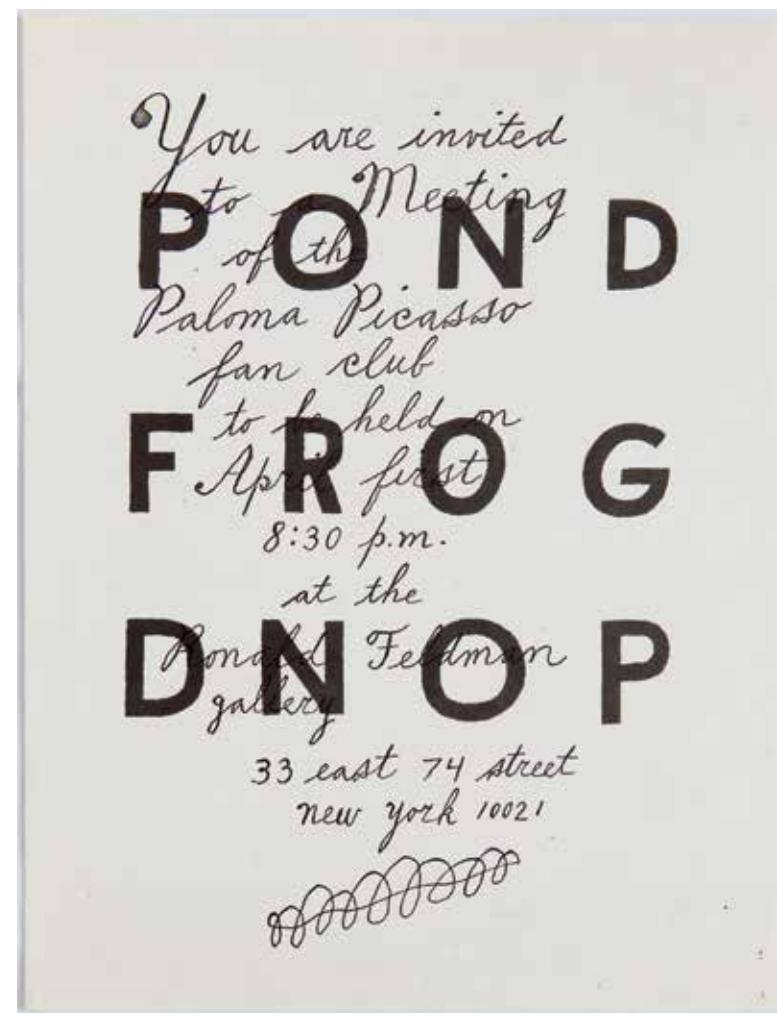 You are invited
to a Meeting
POND
of the
Paloma Picasso
fan club
to be held on
FROG
April first
8:30 p.m.
at the
DNOP
Ronald Feldman
gallery
33 east 74 street
new york 10021